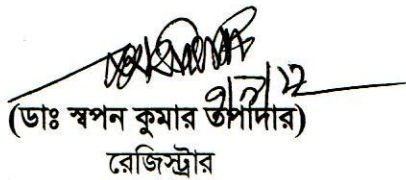 (ডাঃ স্বপন কুমার তপাদার)
রেজিস্ট্রার